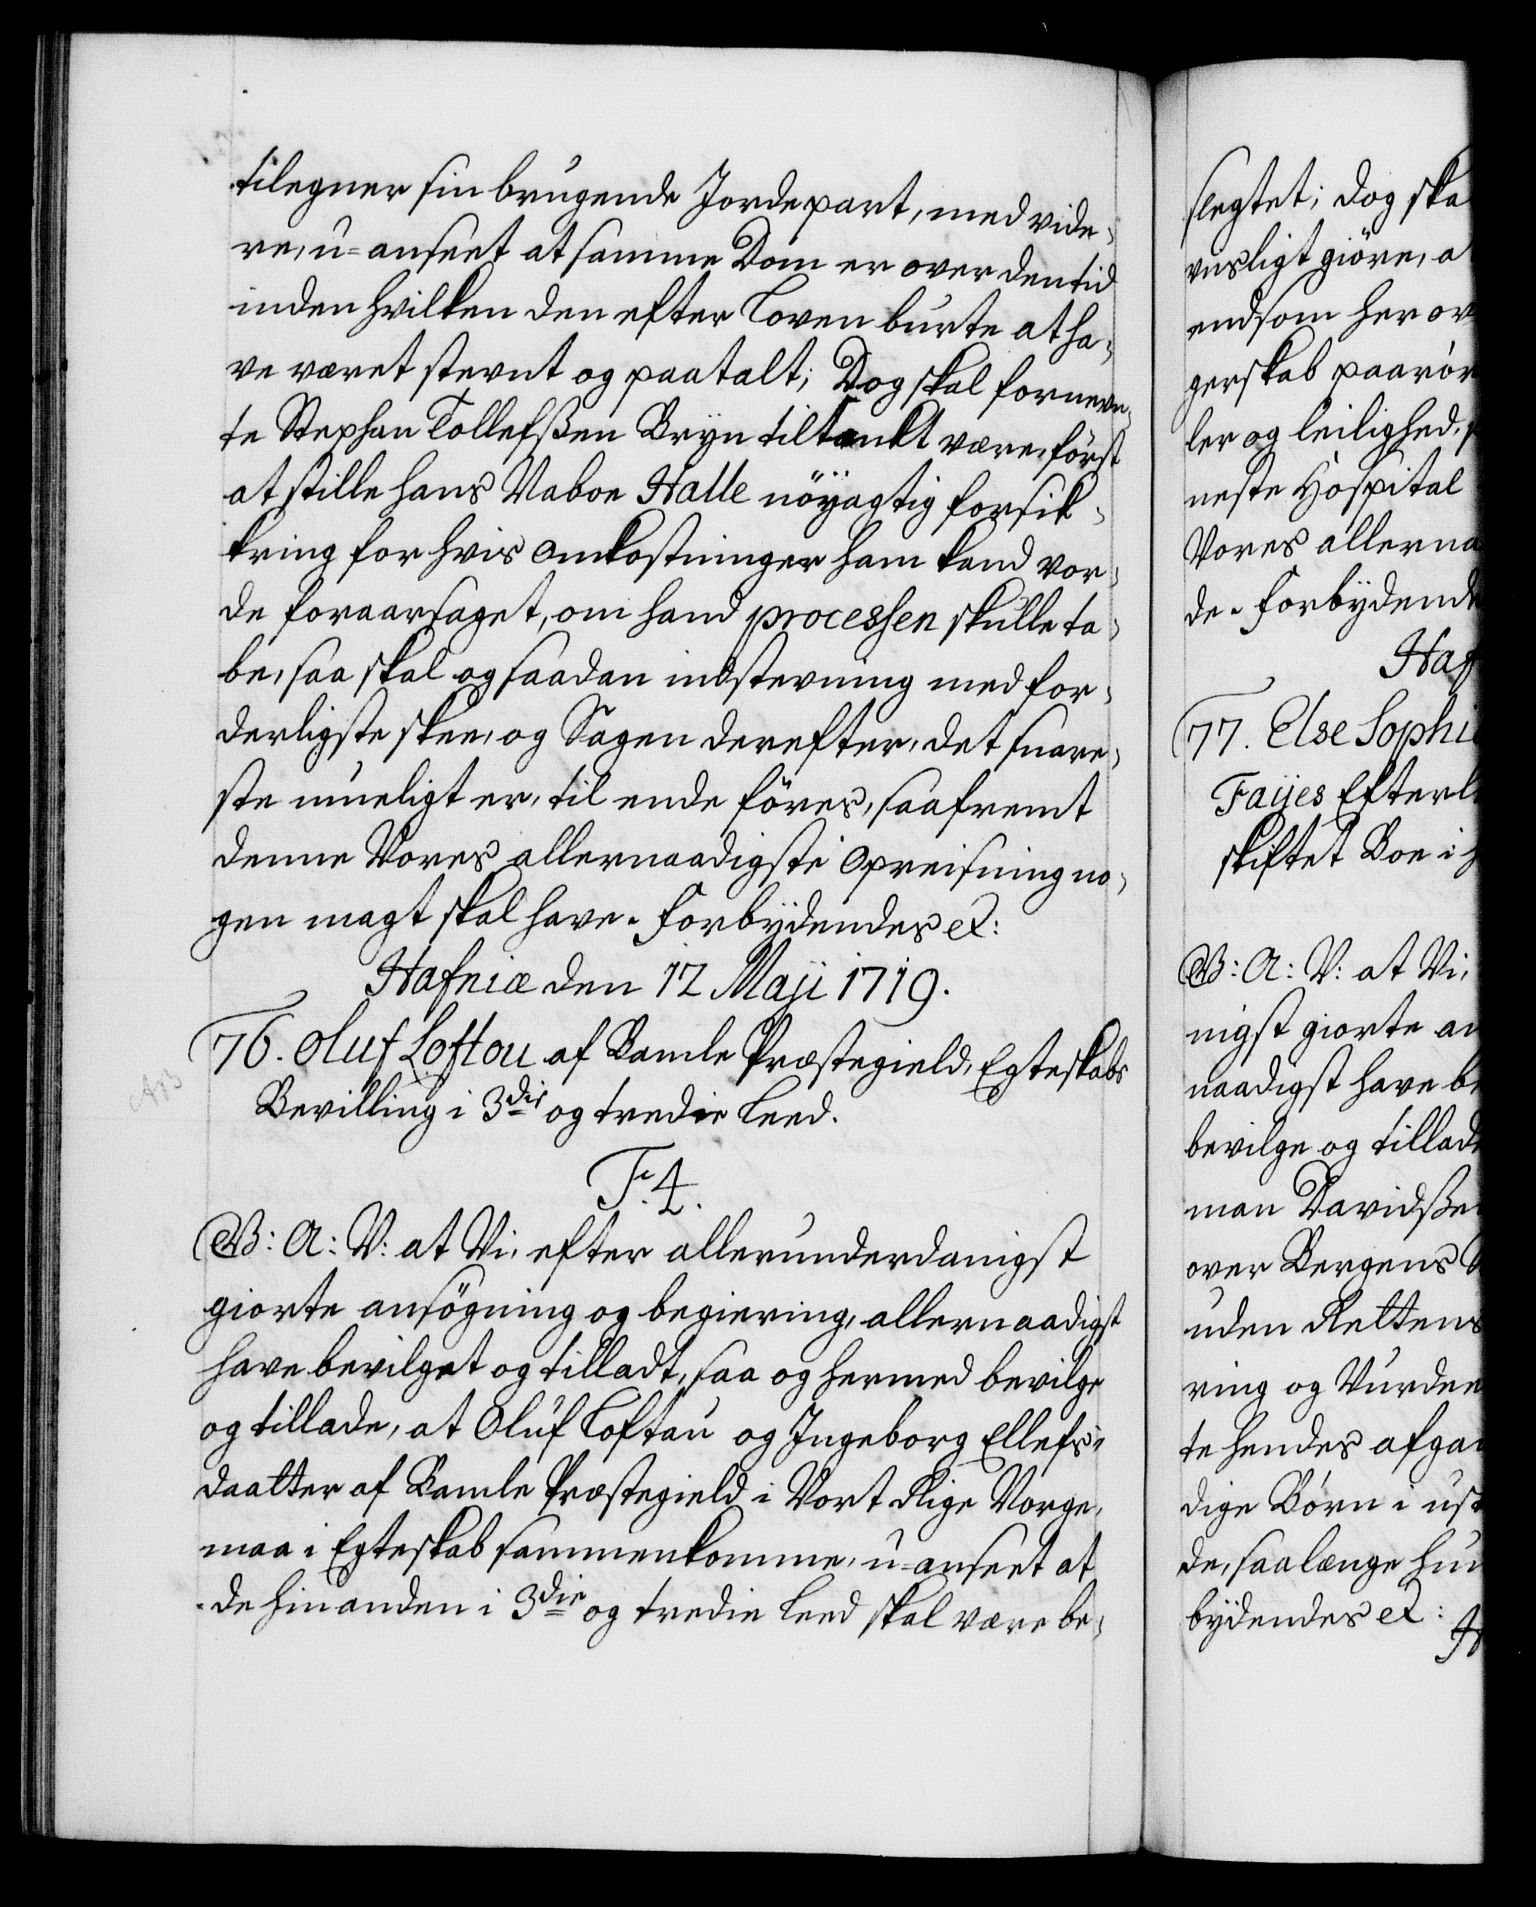 tilegner sin brugende Jordepart, med vide-
re, u-anseet at samme Dom er over den tid
inden hvilken den efter Loven burte at ha-
ve været stevnt og paatalt; Dog skal fornevn-
te Stephan Tollefsßen Bryn tiltænkt være, først
at stille hans Naboe Halle nöyagtig forsik-
kring for hvis omkostninger ham kand vor-
de foraarsaget, om hand processen skulle ta-
be, saa skal og saadan indstevning med for-
derligste skee, og Sagen derefter, det snare-
ste mueligt er, til ende föres, saafremt
denne Vores allernaadigste Opreisning no-
gen magt skal have. Forbydendes et:
Hafniæ den 12 Maji 1719.
76. Oluf Loftou af Bamle Præstegield, Egteskabs
Bevilling i 3die og tredie Leed.
F. 4.
G: A: V: at Vi, efter allerunderdanigst
giorte ansögning og begiering, allernaadigst
have bevilget og tilladt, saa og hermed bevilge
og tillade, at Oluf Loftau og Ingeborg Ellefs-
daatter af Bamle Præstegield i Vort Rige Norge,
maa i Egteskab sammenkomme, u-anseet at
de hinanden i 3die og tredie Leed skal være be-
slegtet; Dog ska
vusligt giöre, a
endsom her ov
gerskab paarör
ler og leilighed,
neste Hospital
Vores allerna
de. Forbydend
Haf
77. Else Sophi
Faijes Efterl
skiftet Boe i
G: A: V: at Vi,
nigst giorte an
naadigst have be
bevilge og tillad
man Davidße
over Bergens
uden Rettens
ring og Vurdee
te hendes afga
dige Börn i usk
de, saalænge hu
bydendes et: